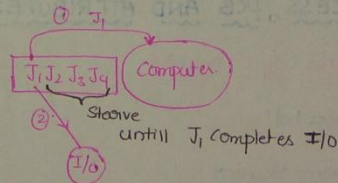 ① J₁
J₁ J₂ J₃ J₄
Computer
Starve
untill J₁ completes I/O
②
I/O